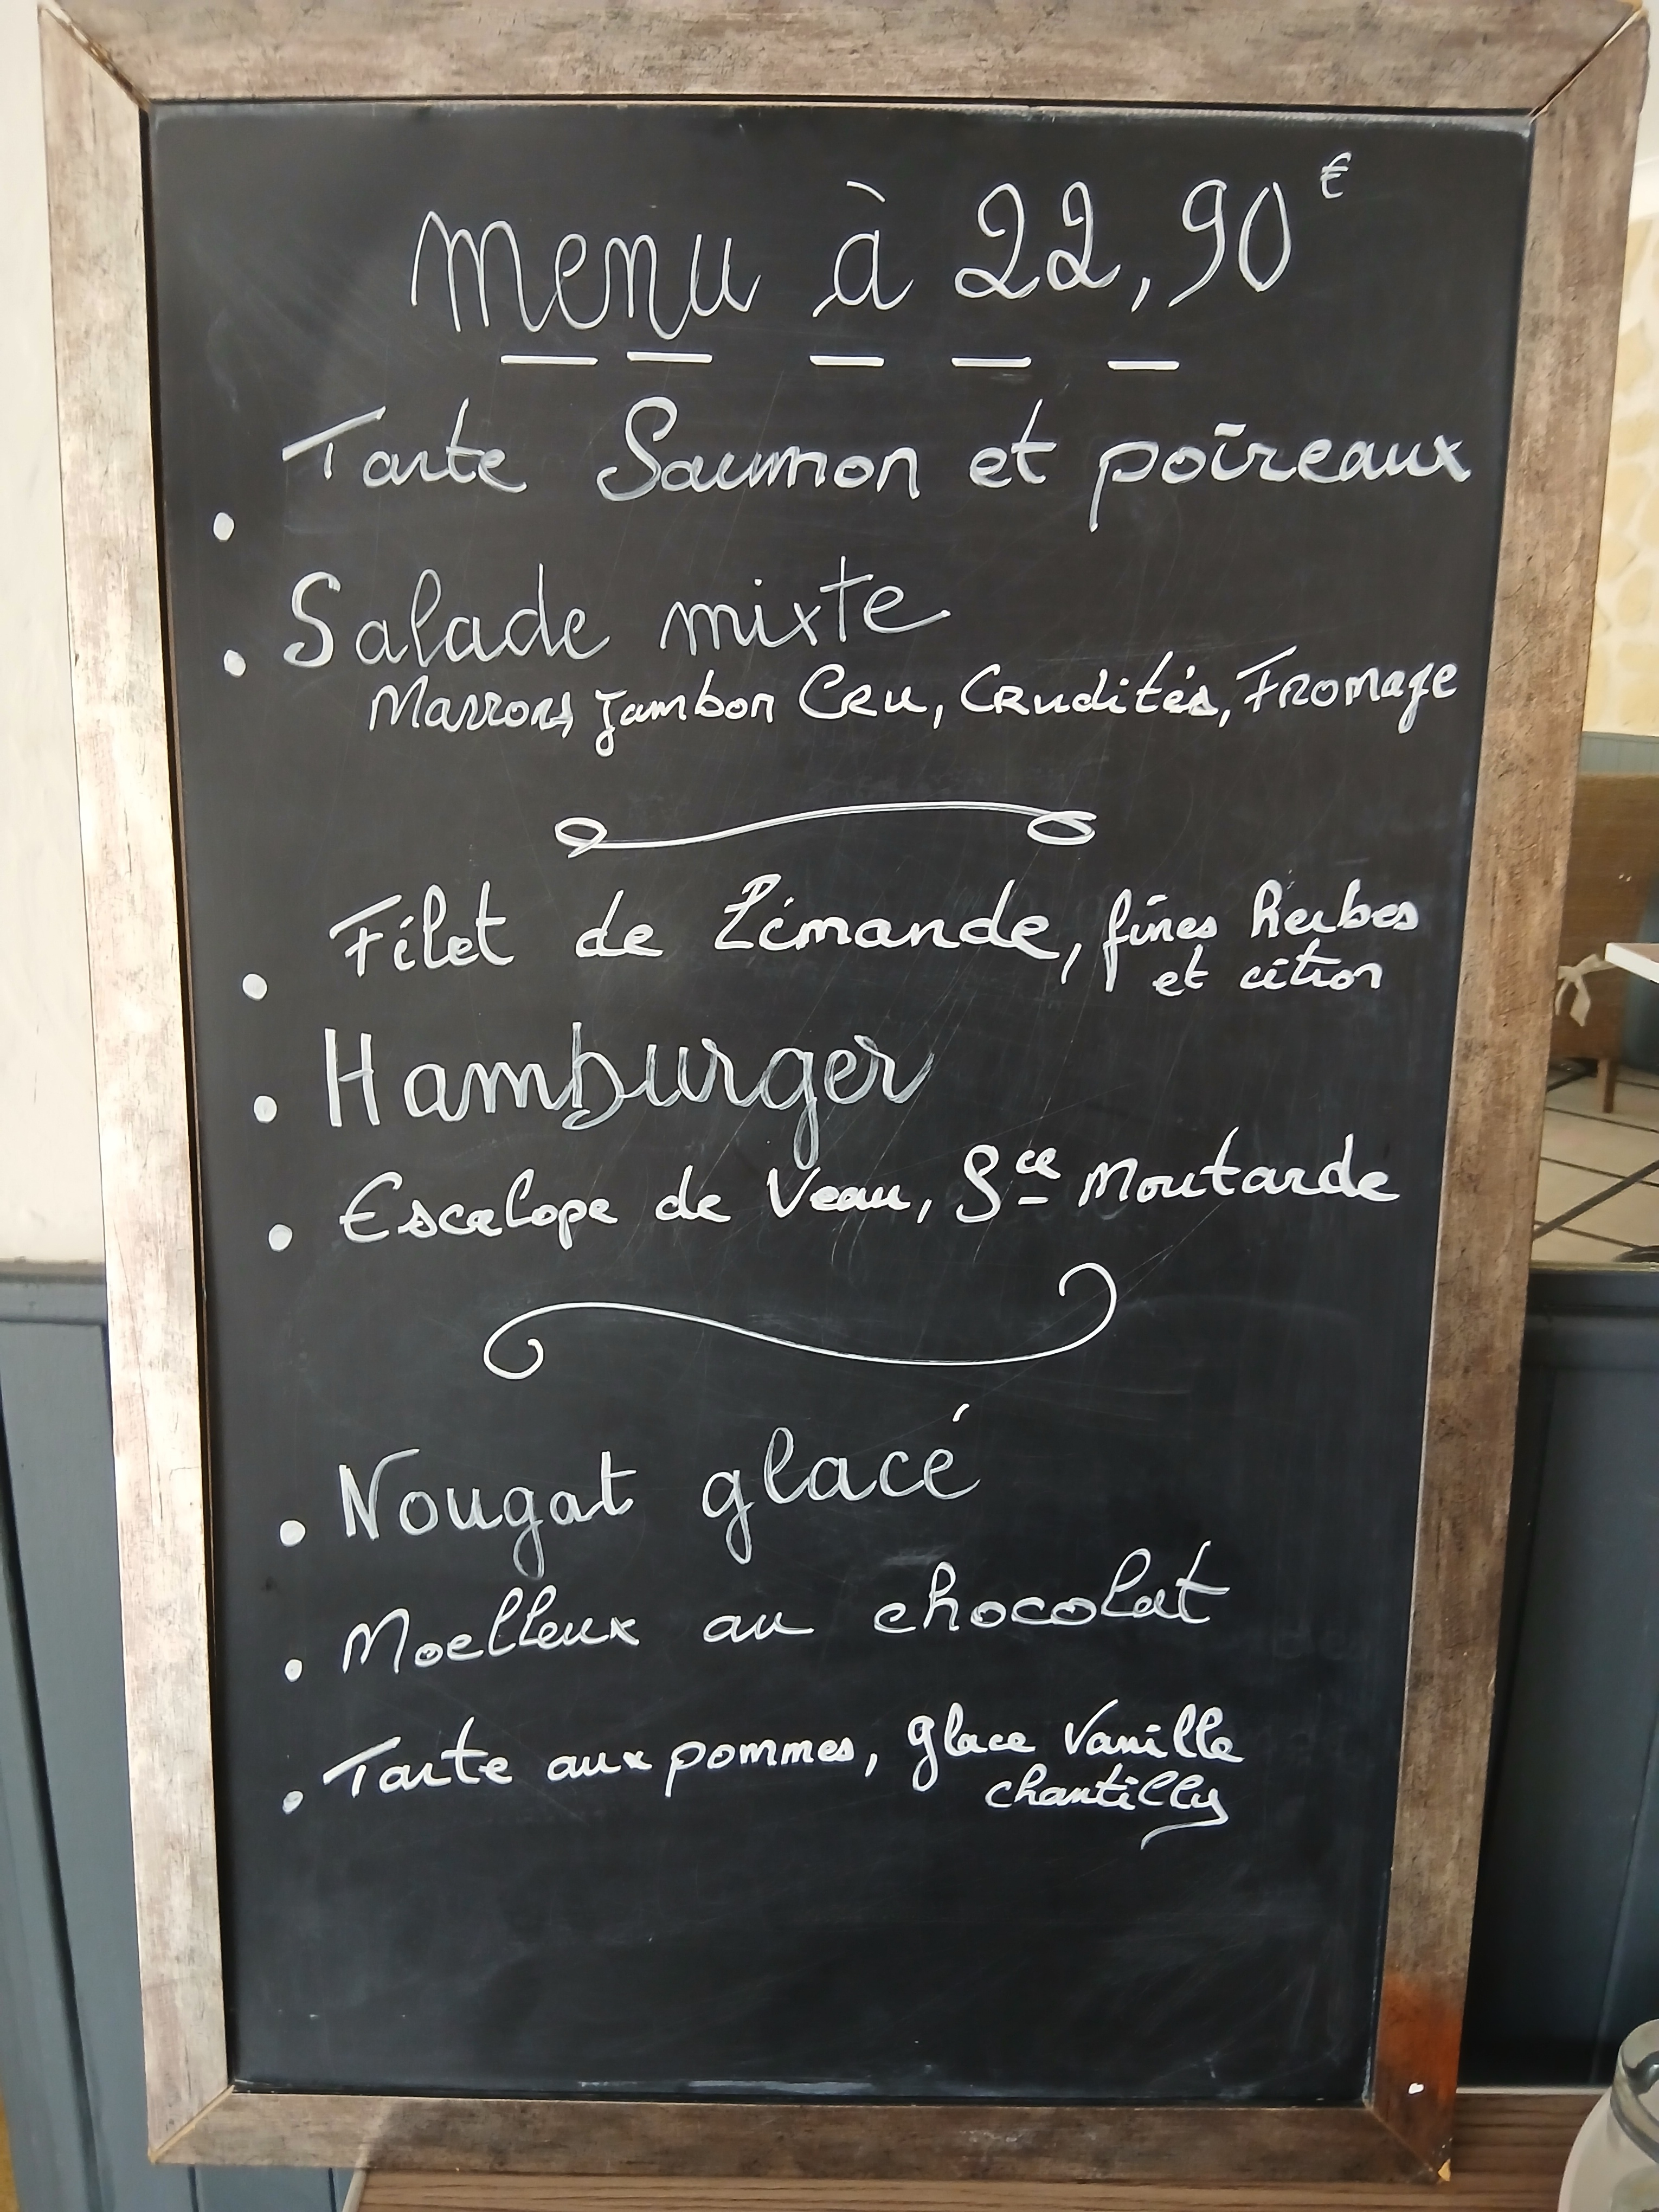 menu à 22,90€
Tarte Saumon et poireaux
Salade mixte
Marrons, jambon Cru, Crudités, Fromage
Filet de Limande, fines herbes
et citron
Hamburger
Escalope de Veau, Sce Moutarde
Nougat glacé
Moelleux au chocolat
Tarte aux pommes, glace Vanille
chantilly